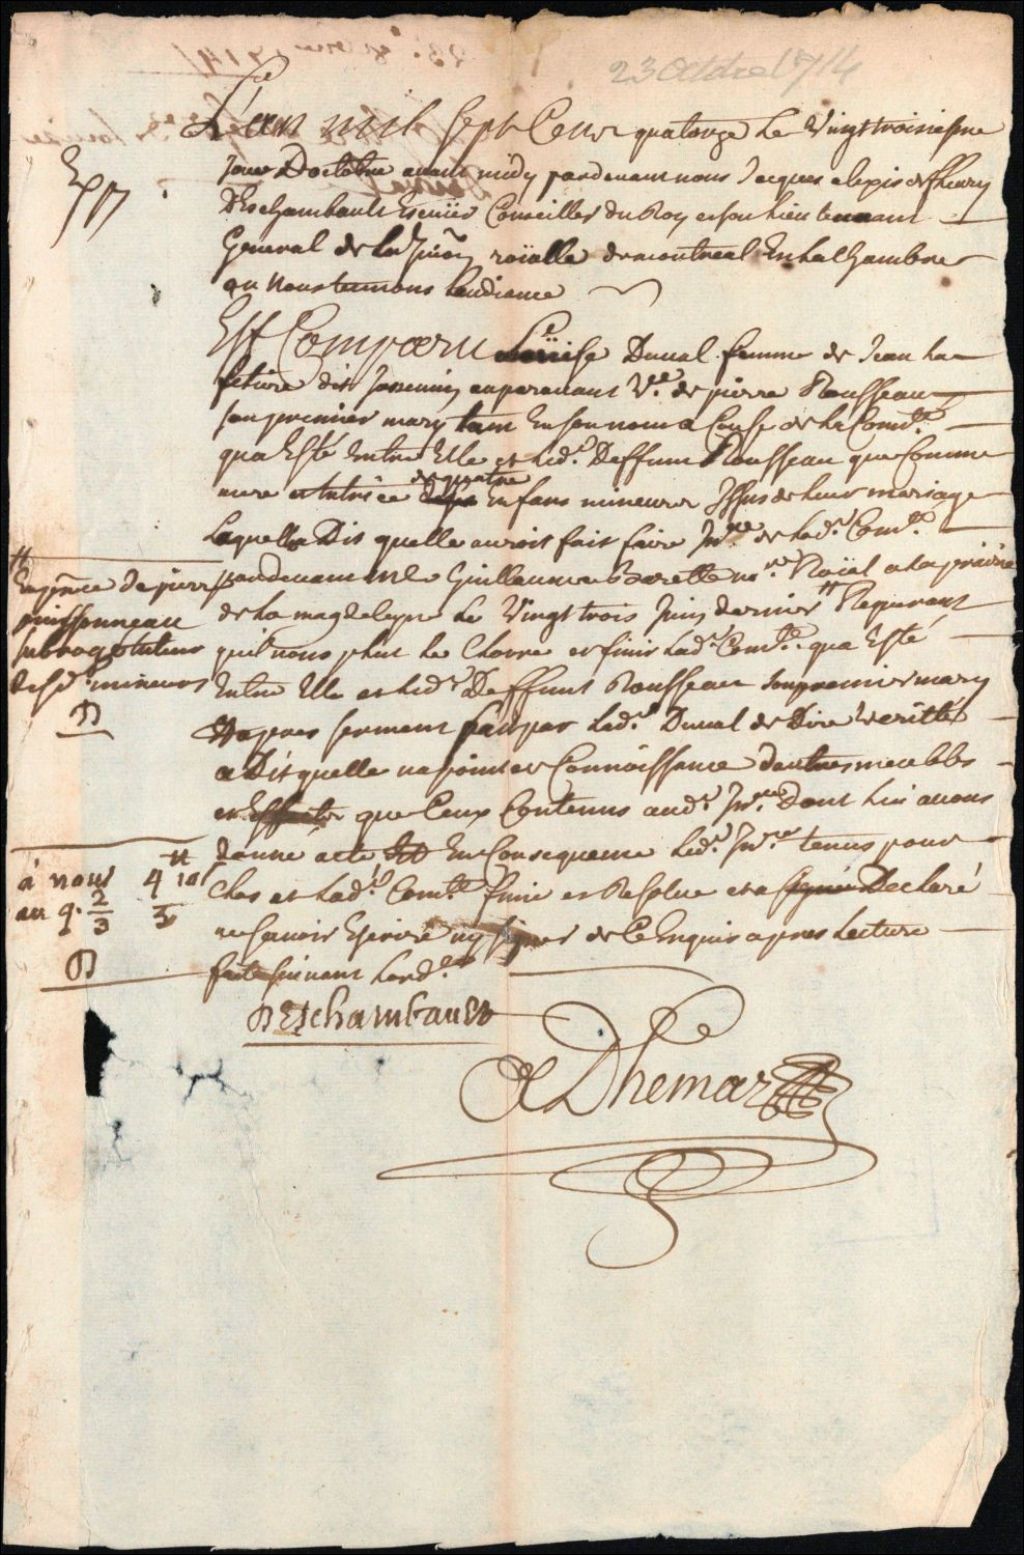 23 octobre 1714
L'an mil Sept Cent quatorze Le Vingt troisiesme
Jour Doctobre avant midy pardevant nous Jacques alexis de fleury
Deschambault Escuier Conseiller du Roy et son Lieutenant
General de la Jurion roialle de montreal En la Chambre
ou Nous tenons Laudiance
Exp.
Est Comparu Loüise Duval femme de Jean La
fetiere dit Jasmin auparavant Ve. de pierre Rousseau
son premier mary tant En son nom a Cause de la Comté.
qua Esté Entre Elle et led. Deffunt Rousseau que Comme
mere et tutrice de quatre Enfans mineurs Issus de leur mariage
Laquelle Dit quelle auroit fait faire Invre. de lad. Comté.
pardevant Me Guillaume Barette nore. Roial a la prairie
de La magdelayne Le Vingt trois Juin dernier # Requerant
quil nous plut de Clorre et finir lad. Comté. qua Esté
Entre Elle et led. Deffunt Rousseau son premier mary
Et apres serment fait par lad. Duval de Dire Veritté
a Dit quelle na point de Connoissance dautres meubles
et Effects que Ceux Contenus aud. Invre. Dont lui avons
donné acte Et En Consequence led. Invre. tenus pour
Clos et lad. Comté. finie et Resolue et a signé Declaré
ne scavoir Escrire ny signer de Ce Enquis apres Lecture
faite suivant Lord.
# En pnce de pierre
puissonneau
subroge tuteur
desd. mineurs
D
à nous 4# 10s
au g. 2/3 3
D
DEschambault
ADhemar